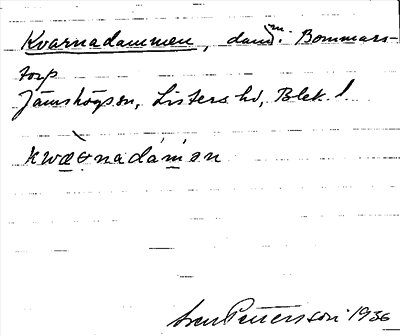 Kvarnadammen, damm i Bommars-
torp
Jämshögs sn, Listers hd, Blek. l.
kwæ̀rnadám̲ən
Sven Pettersson 1936